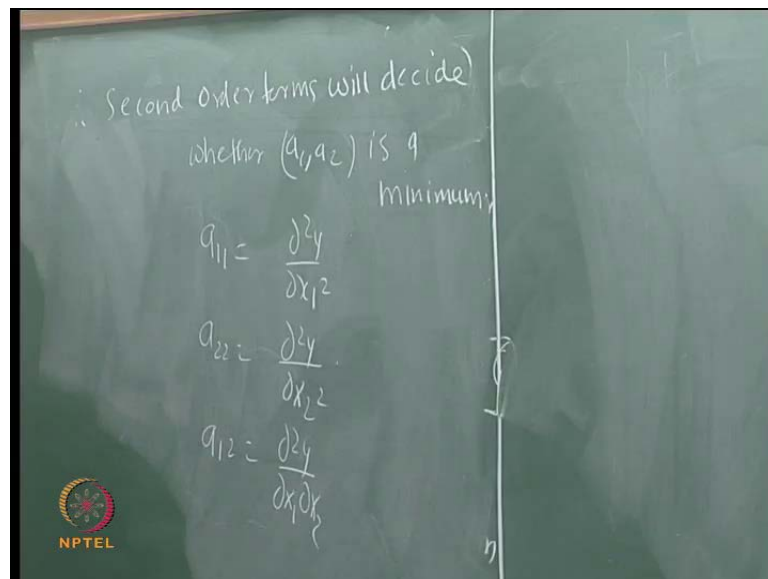 ∴ Second order terms will decide
whether (a₁, a₂) is a
minimum.
a₁₁ = ∂²y / ∂x₁²
a₂₂ = ∂²y / ∂x₂²
a₁₂ = ∂²y / ∂x₁∂x₂
NPTEL